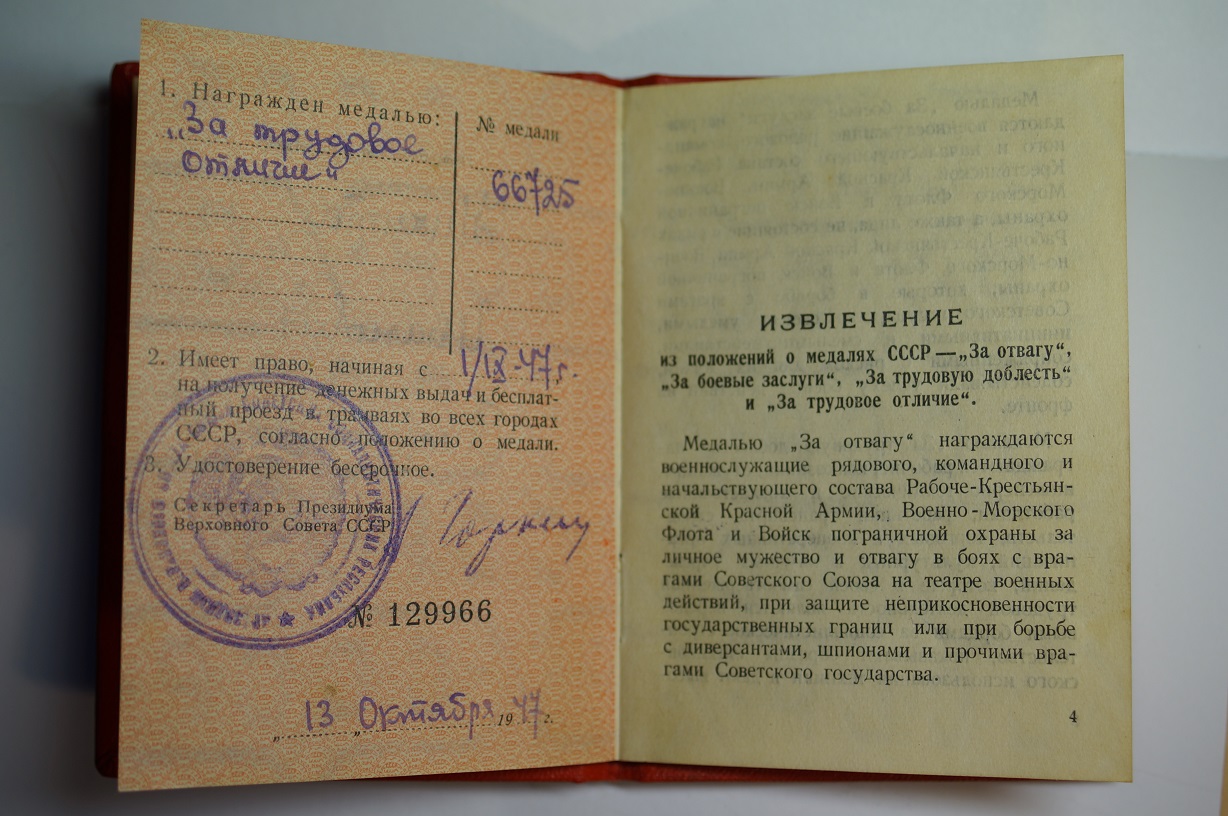 1. Награжден медалью:
№ медали
„За трудовое
отличие"
66725
2. Имеет право, начиная с 1/IX-47г.
на получение денежных выдач и бесплат-
ный проезд в трамваях во всех городах
СССР, согласно положению о медали.
3. Удостоверение бессрочное.
Секретарь Президиума
Верховного Совета СССР
№ 129966
„13 „Октября 1947 г.
ИЗВЛЕЧЕНИЕ
из положений о медалях СССР—„За отвагу“,
„За боевые заслуги“, „За трудовую доблесть“
и „За трудовое отличие“.
Медалью „За отвагу“ награждаются
военнослужащие рядового, командного и
начальствующего состава Рабоче-Крестьян-
ской Красной Армии, Военно-Морского
Флота и Войск пограничной охраны за
личное мужество и отвагу в боях с вра-
гами Советского Союза на театре военных
действий, при защите неприкосновенности
государственных границ или при борьбе
с диверсантами, шпионами и прочими вра-
гами Советского государства.
4